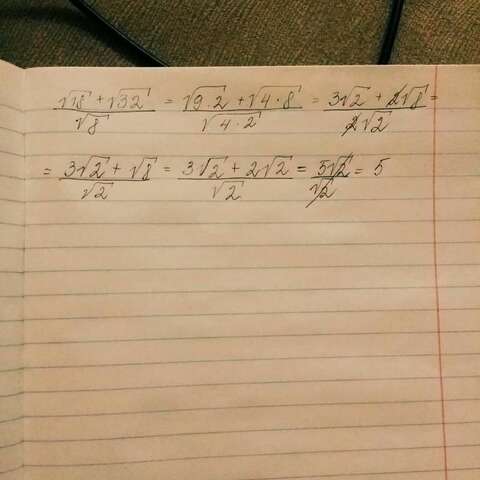 (√18 + √32)/√8 = (√9·2 + √4·8)/√4·2 = (3√2 + 2√8)/2√2 =
= (3√2 + √8)/√2 = (3√2 + 2√2)/√2 = 5√2/√2 = 5